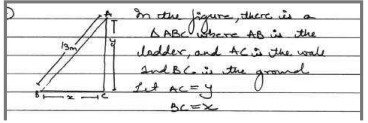 A
13m
y
B x C
In the figure, there is a
Δ ABC where AB is the
ladder, and AC is the wall
and BC is the ground
Let AC = y
BC = x